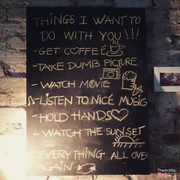 THINGS I WANT TO
DO WITH YOU!!!
- GET COFFEE
- TAKE DUMB PICTURE
- WATCH MOVIE
- LISTEN TO NICE MUSIC
- HOLD HANDS
- WATCH THE SUNSET
- EVERYTHING ALL OVER
AGAIN